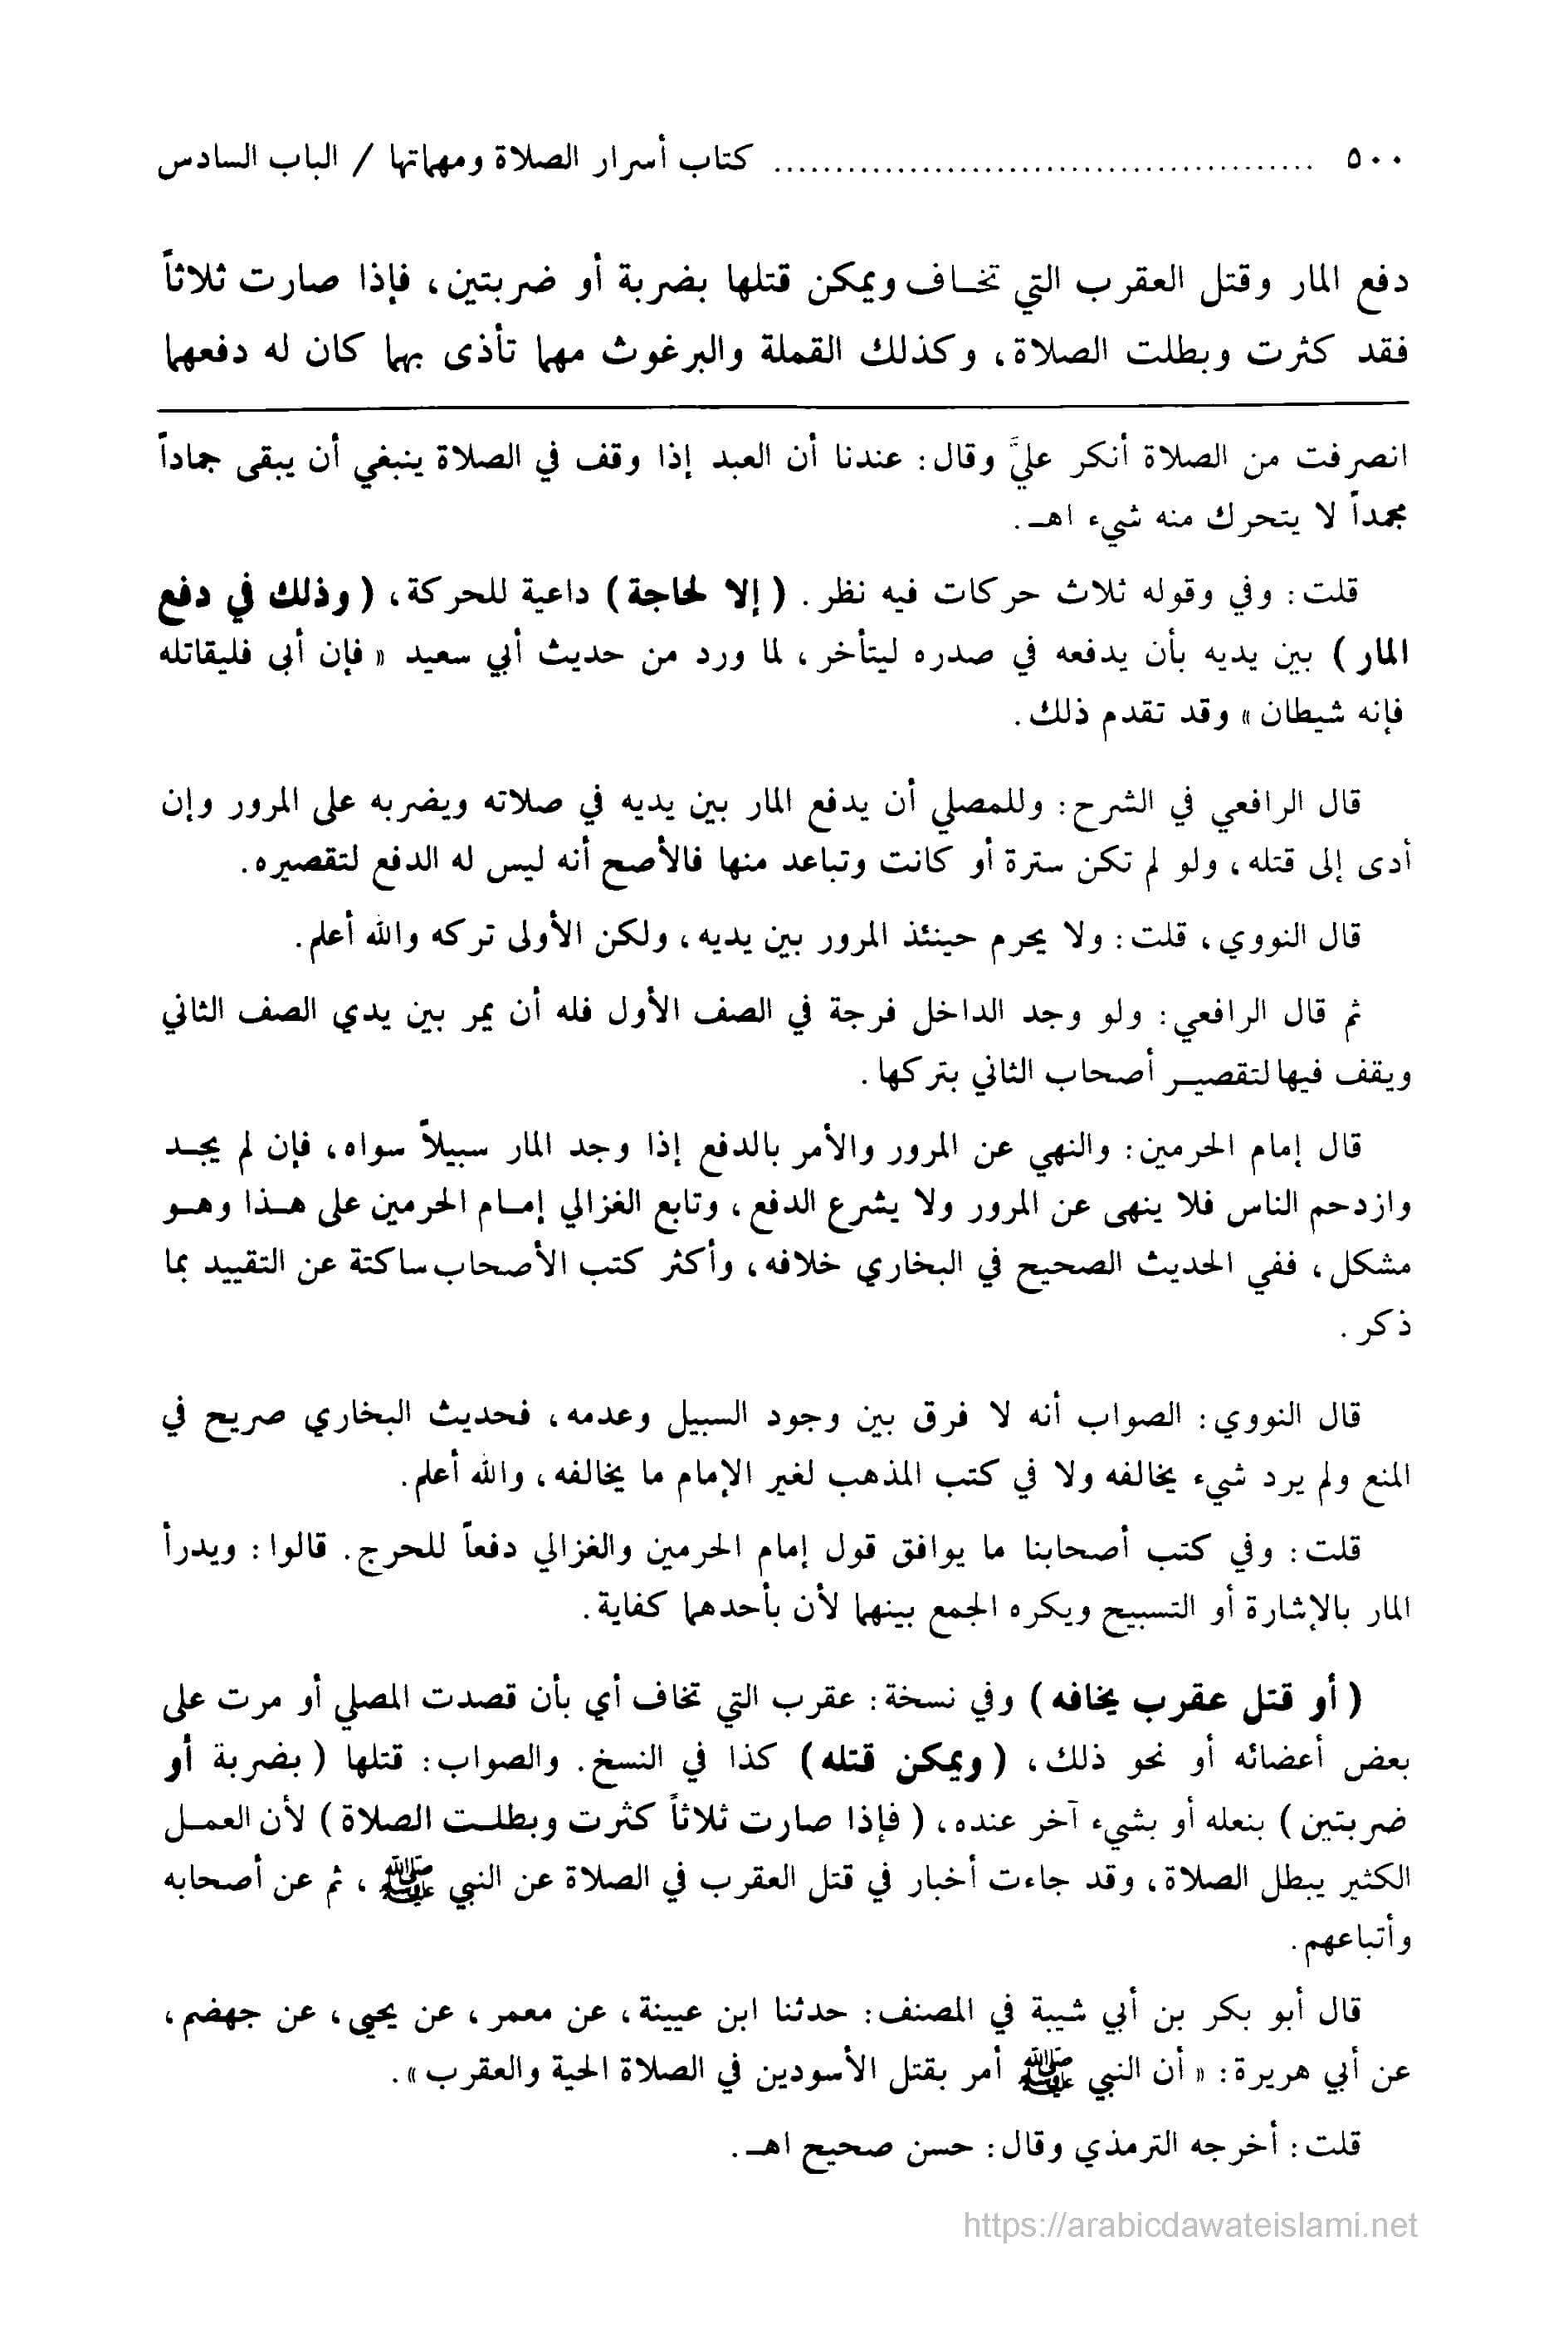 ٥٠٠ ............................................ كتاب أسرار الصلاة ومهماتها / الباب السادس
دفع المار وقتل العقرب التي تخاف ويمكن قتلها بضربة أو ضربتين، فإذا صارت ثلاثاً
فقد كثرت وبطلت الصلاة، وكذلك القملة والبرغوث مهما تأذى بهما كان له دفعهما
انصرفت من الصلاة أنكر عليَّ وقال: عندنا أن العبد إذا وقف في الصلاة ينبغي أن يبقى جماداً
مجمداً لا يتحرك منه شيء اهـ.
قلت: وفي وقوله ثلاث حركات فيه نظر. (إلا لحاجة) داعية للحركة، (وذلك في دفع
المار) بين يديه بأن يدفعه في صدره ليتأخر، لما ورد من حديث أبي سعيد «فإن أبى فليقاتله
فإنه شيطان» وقد تقدم ذلك.
قال الرافعي في الشرح: وللمصلي أن يدفع المار بين يديه في صلاته ويضربه على المرور وإن
أدى إلى قتله، ولو لم تكن سترة أو كانت وتباعد منها فالأصح أنه ليس له الدفع لتقصيره.
قال النووي، قلت: ولا يحرم حينئذ المرور بين يديه، ولكن الأولى تركه والله أعلم.
ثم قال الرافعي: ولو وجد الداخل فرجة في الصف الأول فله أن يمر بين يدي الصف الثاني
ويقف فيها لتقصيـر أصحاب الثاني بتركها.
قال إمام الحرمين: والنهي عن المرور والأمر بالدفع إذا وجد المار سبيلاً سواه، فإن لم يجـد
وازدحم الناس فلا ينهى عن المرور ولا يشرع الدفع، وتابع الغزالي إمـام الحرمين على هـذا وهـو
مشكل، ففي الحديث الصحيح في البخاري خلافه، وأكثر كتب الأصحاب ساكتة عن التقييد بما
ذكر.
قال النووي: الصواب أنه لا فرق بين وجود السبيل وعدمه، فحديث البخاري صريح في
المنع ولم يرد شيء يخالفه ولا في كتب المذهب لغير الإمام ما يخالفه، والله أعلم.
قلت: وفي كتب أصحابنا ما يوافق قول إمام الحرمين والغزالي دفعاً للحرج. قالوا: ويدرأ
المار بالإشارة أو التسبيح ويكره الجمع بينهما لأن بأحدهما كفاية.
(أو قتل عقرب يخافه) وفي نسخة: عقرب التي تخاف أي بأن قصدت المصلي أو مرت على
بعض أعضائه أو نحو ذلك، (ويمكن قتله) كذا في النسخ. والصواب: قتلها (بضربة أو
ضربتين) بنعله أو بشيء آخر عنده، (فإذا صارت ثلاثاً كثرت وبطلـت الصلاة) لأن العمـل
الكثير يبطل الصلاة، وقد جاءت أخبار في قتل العقرب في الصلاة عن النبي ﷺ، ثم عن أصحابه
وأتباعهم.
قال أبو بكر بن أبي شيبة في المصنف: حدثنا ابن عيينة، عن معمر، عن يحيى، عن جهضم،
عن أبي هريرة: «أن النبي ﷺ أمر بقتل الأسودين في الصلاة الحية والعقرب».
قلت: أخرجه الترمذي وقال: حسن صحيح اهـ.
https://arabicdawateislami.net